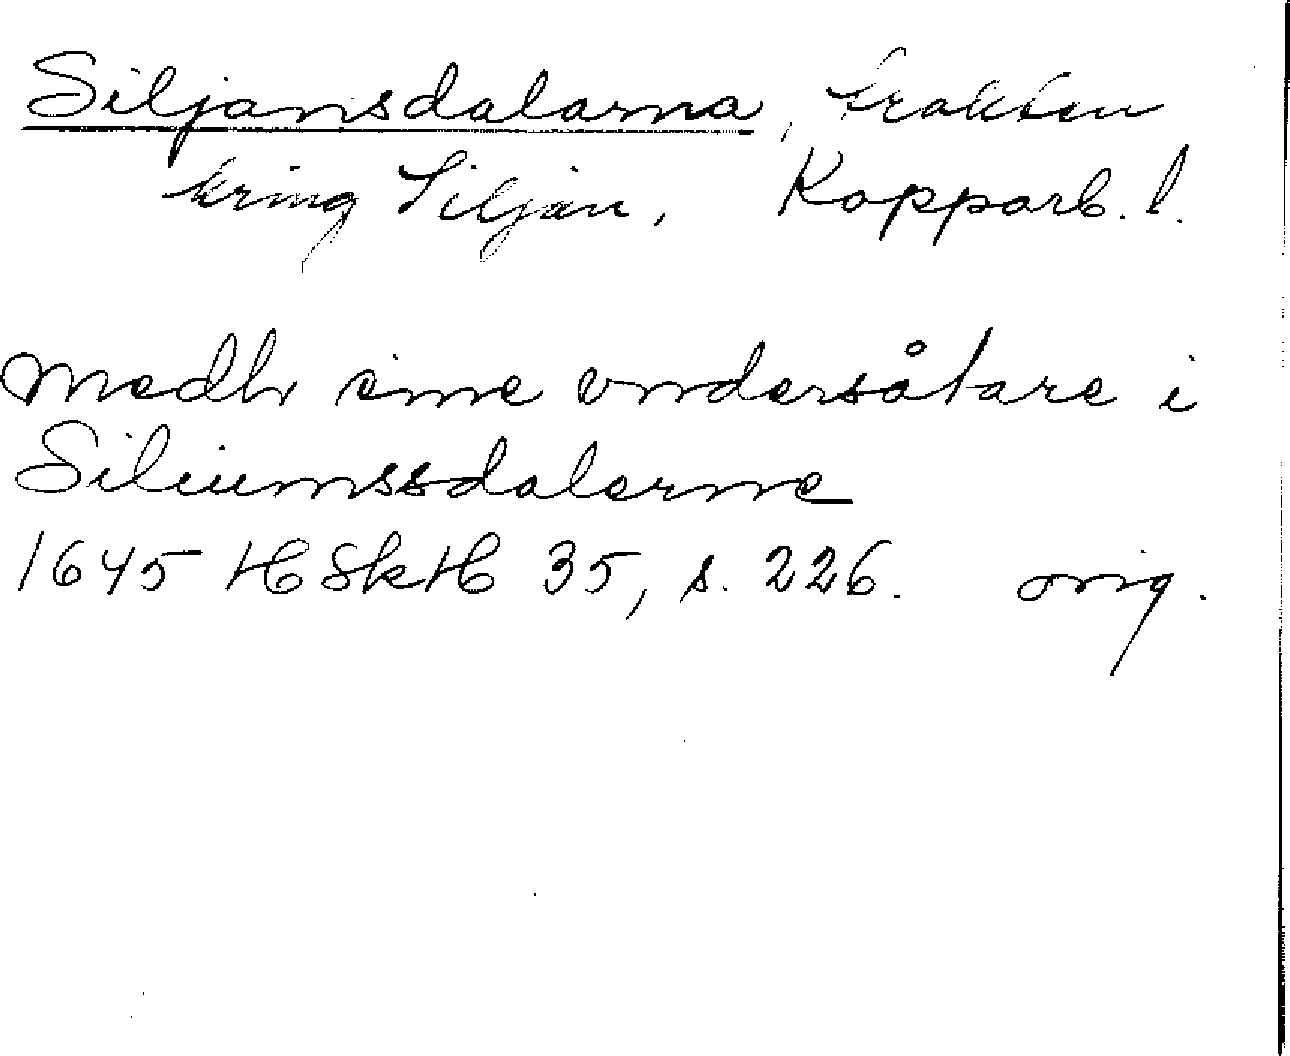 Siljansdalarna, trakten
kring Siljan, Kopparb. l.
medh sine vndersåtare i
Siliumssdalerne
1645 HSkH 35, s. 226. orig.